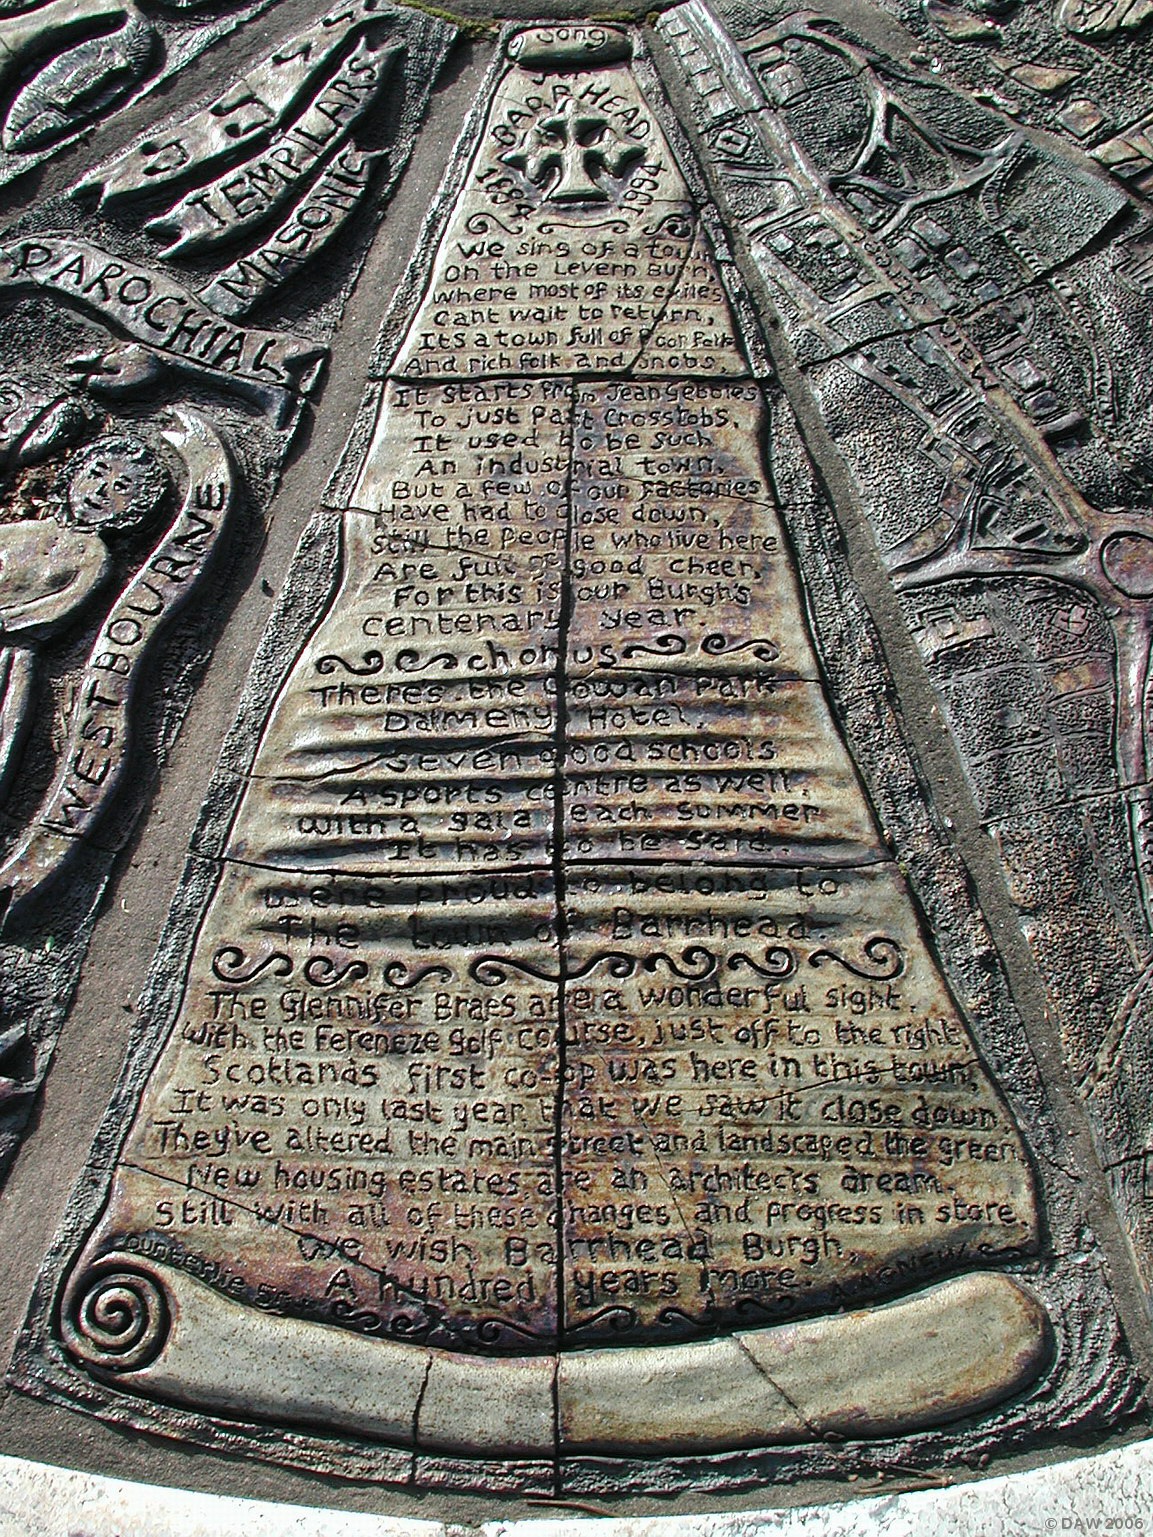 Song
for
BARRHEAD
1894 1994
We sing of a town
On the Levern Burn,
where most of its exiles
Cant wait to return,
Its a town full of Poor Folk
And rich folk and snobs,
It starts from Jeangebbies
To just Past Crosstobs,
It used to be such
An industrial town,
But a few of our factories
Have had to close down,
Still the people who live here
Are full of good cheer,
For this is our Burghs
centenary year.
chorus
Theres the Cowan Park
Dalmeny Hotel,
Seven good schools
A sports centre as well,
with a gala each summer
It has to be said.
we're proud to belong to
The town of Barrhead
The Glennifer Braes are a wonderful sight,
with the Fereneze golf course, just off to the right,
Scotlands first co-op was here in this town,
It was only last year that we saw it close down,
They've altered the main street and landscaped the green,
New housing estates are an architects dream.
Still with all of these changes and progress in store,
we wish Barrhead Burgh,
A hundred years more.
A. AGNEW
TEMPLARS
MASONIC
PAROCHIAL
WESTBOURNE
Main Street
© DAW 2006